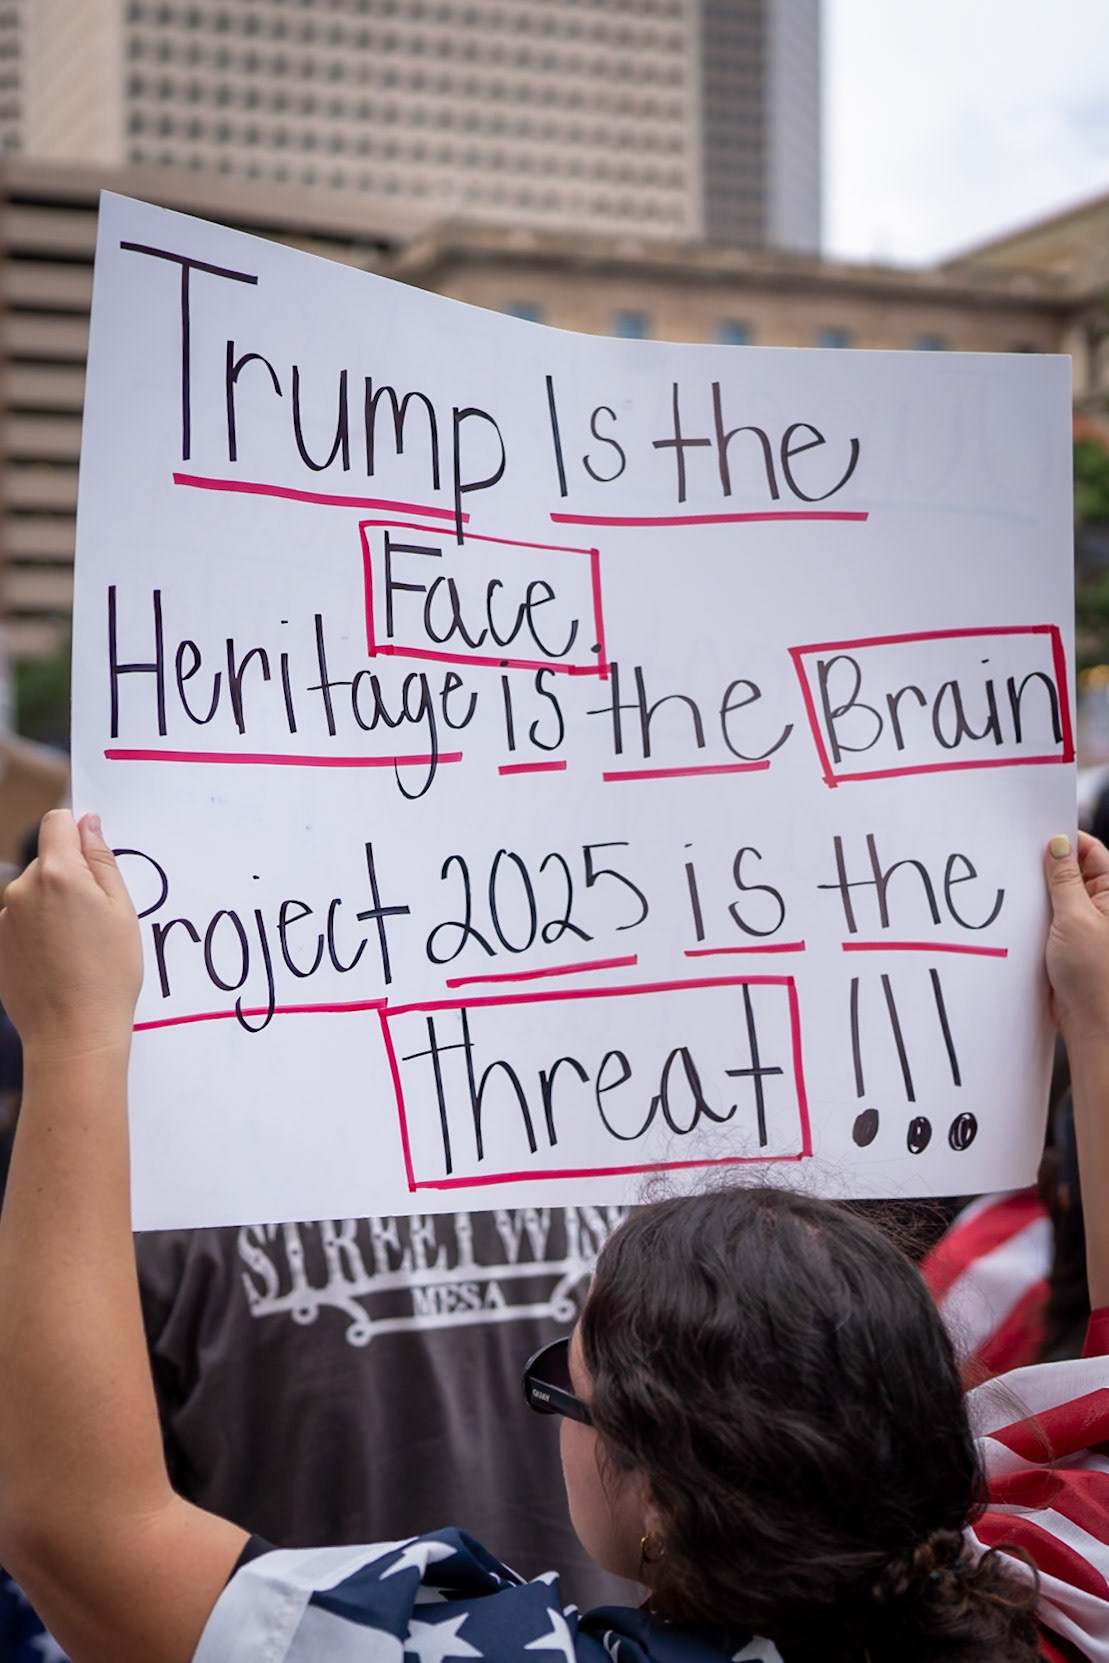 Trump Is the
Face.
Heritage is the Brain
Project 2025 is the
threat !!!
STREETWISE
MESA
QUAY